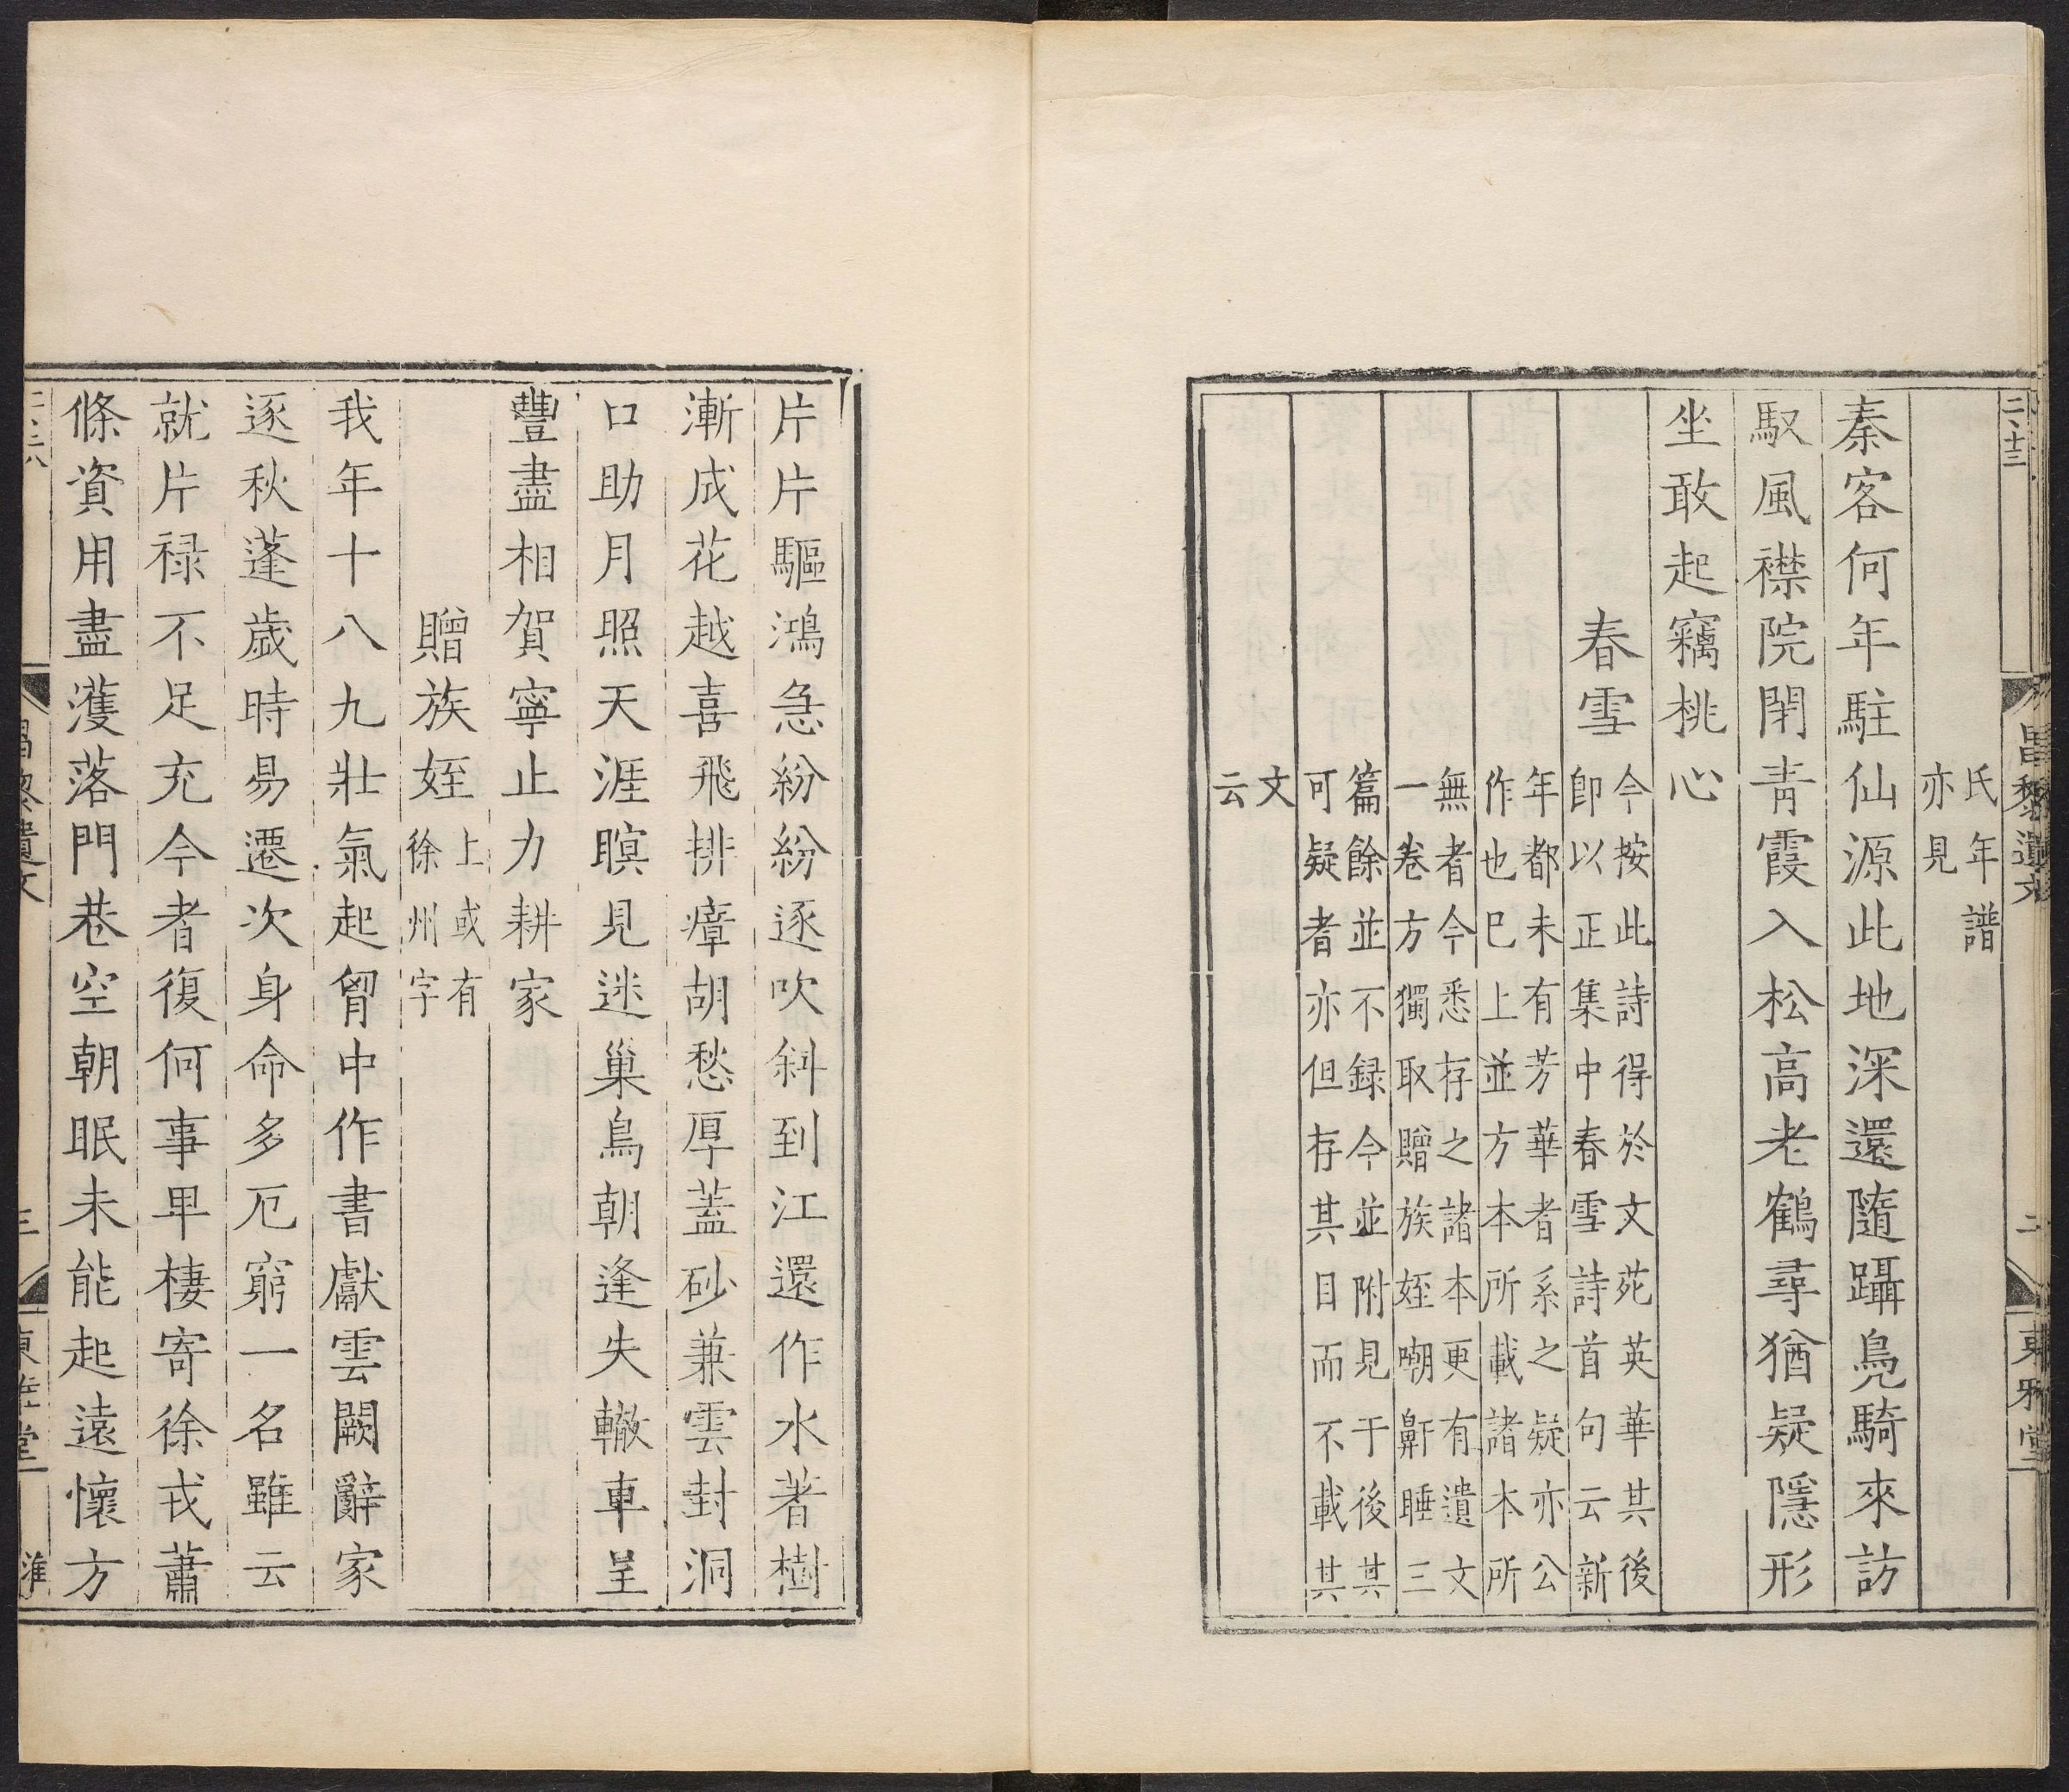 二、十三
昌黎遺文
二
東雅堂
氏年譜
亦見
秦客何年駐仙源此地深還隨躡鳧騎來訪
馭風襟院閉青霞入松高老鶴尋猶疑隱形
坐敢起竊桃心
春雪
今按此詩得於文苑英華其後
卽以正集中春雪詩首句云新
年都未有芳華者系之疑亦公
作也巳上並方本所載諸本所
無者今悉存之諸本更有遺文
一卷方獨取贈族姪嘲鼾睡三
篇餘並不録今並附見于後其
可疑者亦但存其目而不載其
文
云
片片驅鴻急紛紛逐吹斜到江還作水著樹
漸成花越喜飛排瘴胡愁厚蓋砂兼雲封洞
口助月照天涯瞑見迷巢鳥朝逢失轍車呈
豐盡相賀寧止力耕家
贈族姪
上或有
徐州字
我年十八九壯氣起胷中作書獻雲闕辭家
逐秋蓬歲時易遷次身命多厄窮一名雖云
就片禄不足充今者復何事卑棲寄徐戎蕭
條資用盡濩落門巷空朝眠未能起遠懷方
昌黎遺文
三
東雅堂